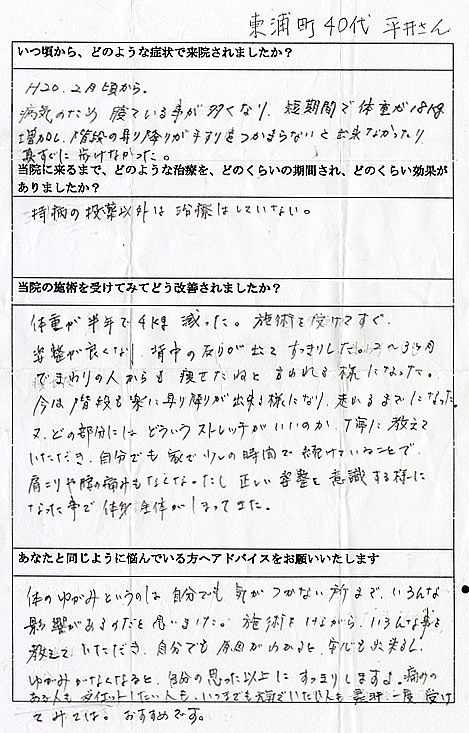 東浦町 40代 平井さん
いつ頃から、どのような症状で来院されましたか？
H20.2月頃から。
病気のため 寝ている事が多くなり、短期間で体重が18kg
増加し、階段の昇り降りが手すりをつかまらないと出来なかったり
真すぐに歩けなかった。
当院に来るまで、どのような治療を、どのくらいの期間され、どのくらい効果が
ありましたか？
持病の投薬以外は治療はしていない。
当院の施術を受けてみてどう改善されましたか？
体重が半年で4kg減った。施術を受けてすぐ、
姿勢が良くなり、背中の反りが出て すっきりした。2〜3ヶ月
でまわりの人からも 痩せたねと言われる様になった。
今は階段も楽に昇り降りが出来る様になり、走れるまでになった。
又、どの部分には どういうストレッチがいいのか、丁寧に教えて
いただき、自分でも家で少しの時間で続けていることで、
肩こりや腰の痛みもなくなったし 正しい姿勢を意識する様に
なった事で 体全体がしまってきた。
あなたと同じように悩んでいる方へアドバイスをお願いいたします
体のゆがみというのは 自分でも 気がつかない所まで、いろんな
影響があるのだと思いました。施術をうけながら、いろんな事を
教えていただき、自分でも原因がわかると、安心も出来るし、
ゆがみがなくなると、自分の思った以上に すっきりしますよ。痛みの
ある人も、ダイエットしたい人も、いつまでも元気でいたい人も 是非一度 受け
てみては。おすすめです。